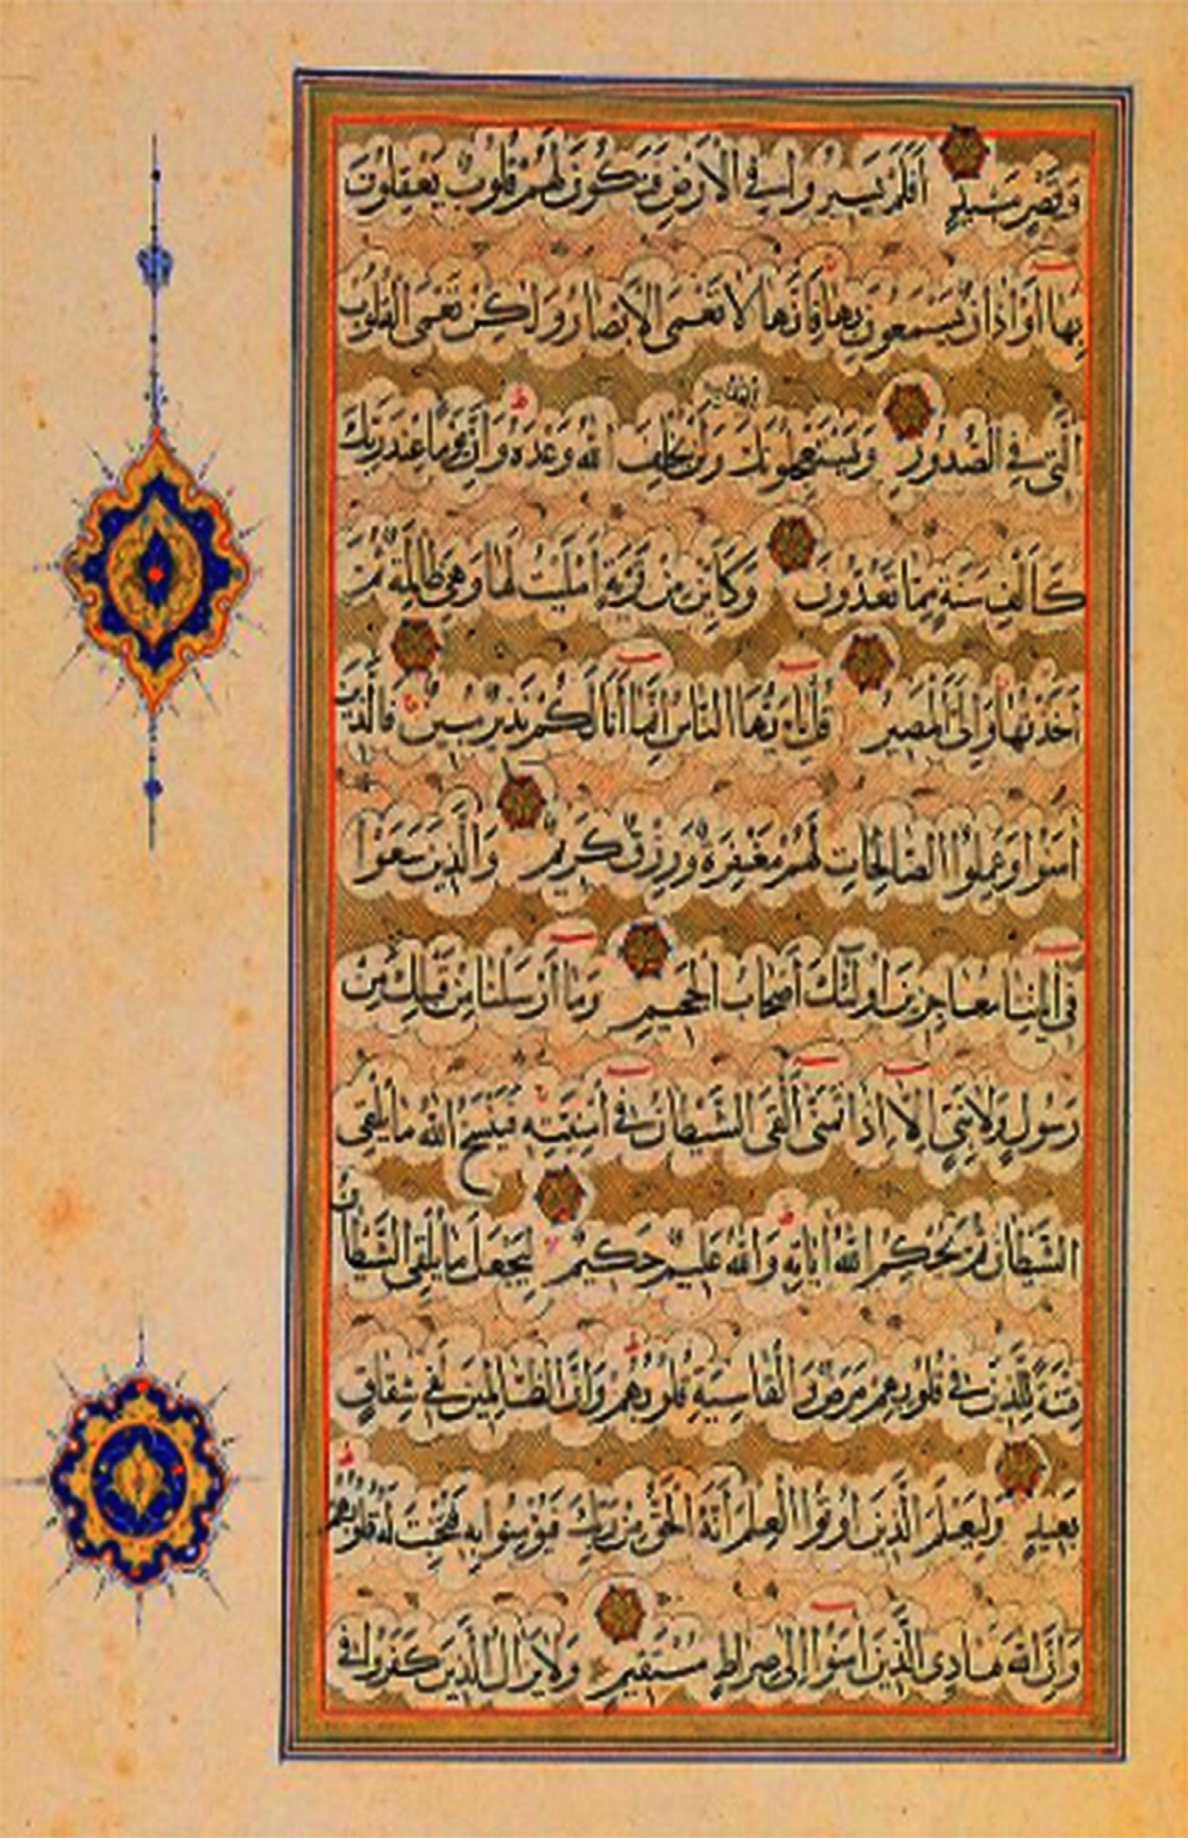 وَقَصْرٍ مَشِيدٍ أَفَلَمْ يَسِيرُوا فِي الْأَرْضِ فَتَكُونَ لَهُمْ قُلُوبٌ يَعْقِلُونَ
بِهَا أَوْ آذَانٌ يَسْمَعُونَ بِهَا فَإِنَّهَا لَا تَعْمَى الْأَبْصَارُ وَلَكِنْ تَعْمَى الْقُلُوبُ
الَّتِي فِي الصُّدُورِ وَيَسْتَعْجِلُونَكَ بِالْعَذَابِ وَلَنْ يُخْلِفَ اللَّهُ وَعْدَهُ وَإِنَّ يَوْمًا عِنْدَ رَبِّكَ
كَأَلْفِ سَنَةٍ مِمَّا تَعُدُّونَ وَكَأَيِّنْ مِنْ قَرْيَةٍ أَمْلَيْتُ لَهَا وَهِيَ ظَالِمَةٌ ثُمَّ
أَخَذْتُهَا وَإِلَيَّ الْمَصِيرُ قُلْ يَا أَيُّهَا النَّاسُ إِنَّمَا أَنَا لَكُمْ نَذِيرٌ مُبِينٌ فَالَّذِينَ
آمَنُوا وَعَمِلُوا الصَّالِحَاتِ لَهُمْ مَغْفِرَةٌ وَرِزْقٌ كَرِيمٌ وَالَّذِينَ سَعَوْا
فِي آيَاتِنَا مُعَاجِزِينَ أُولَئِكَ أَصْحَابُ الْجَحِيمِ وَمَا أَرْسَلْنَا مِنْ قَبْلِكَ مِنْ
رَسُولٍ وَلَا نَبِيٍّ إِلَّا إِذَا تَمَنَّى أَلْقَى الشَّيْطَانُ فِي أُمْنِيَّتِهِ فَيَنْسَخُ اللَّهُ مَا يُلْقِي
الشَّيْطَانُ ثُمَّ يُحْكِمُ اللَّهُ آيَاتِهِ وَاللَّهُ عَلِيمٌ حَكِيمٌ لِيَجْعَلَ مَا يُلْقِي الشَّيْطَانُ
فِتْنَةً لِلَّذِينَ فِي قُلُوبِهِمْ مَرَضٌ وَالْقَاسِيَةِ قُلُوبُهُمْ وَإِنَّ الظَّالِمِينَ لَفِي شِقَاقٍ
بَعِيدٍ وَلِيَعْلَمَ الَّذِينَ أُوتُوا الْعِلْمَ أَنَّهُ الْحَقُّ مِنْ رَبِّكَ فَيُؤْمِنُوا بِهِ فَتُخْبِتَ لَهُ قُلُوبُهُمْ
وَإِنَّ اللَّهَ هَادِي الَّذِينَ آمَنُوا إِلَى صِرَاطٍ مُسْتَقِيمٍ وَلَا يَزَالُ الَّذِينَ كَفَرُوا فِي